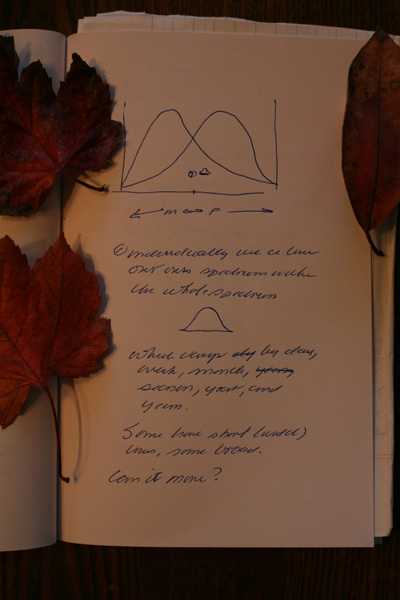 m ↔ P
individually we a have
our own spectrum within
the whole spectrum
which varys day by day,
week, month, years
season, year, and
years.
Some have short (width)
lines, some broad.
Can it move?